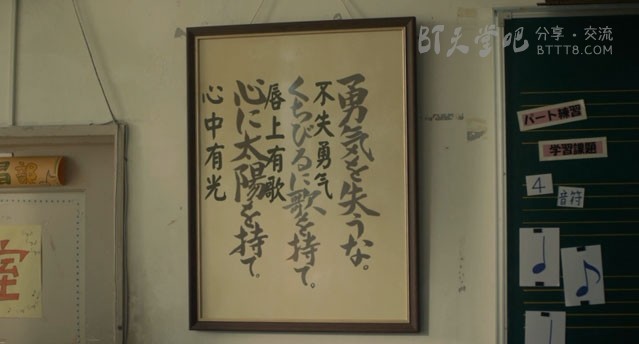 勇気を失うな。
不失勇气
くちびるに歌を持て。
唇上有歌
心に太陽を持て。
心中有光
BT天堂吧
分享·交流
BTTT8.COM
パート練習
学習課題
4
音符
室